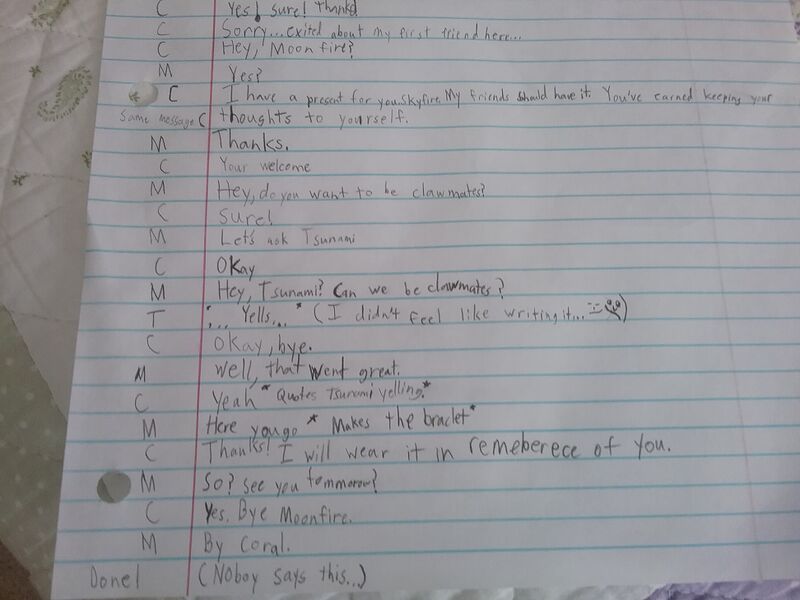 C Yes! sure! Thanks
C Sorry...exited about my first friend here...
C Hey, Moonfire?
M Yes?
C I have a present for you. Skyfire. My friends should have it. You've earned keeping your
Same message C thoughts to yourself.
M Thanks.
C Your welcome
M Hey, do you want to be clawmates?
C Sure!
M Let's ask Tsunami
C Okay
M Hey, Tsunami? Can we be clawmates?
T *... Yells...* (I didn't feel like writing it...)
C Okay, bye.
M Well, that went great.
C Yeah *Quotes Tsunami yelling.*
M Here you go *Makes the braclet*
C Thanks! I will wear it in remeberece of you.
M So? See you tommorow?
C Yes. Bye Moonfire.
M By Coral.
Done! (Noboy says this...)